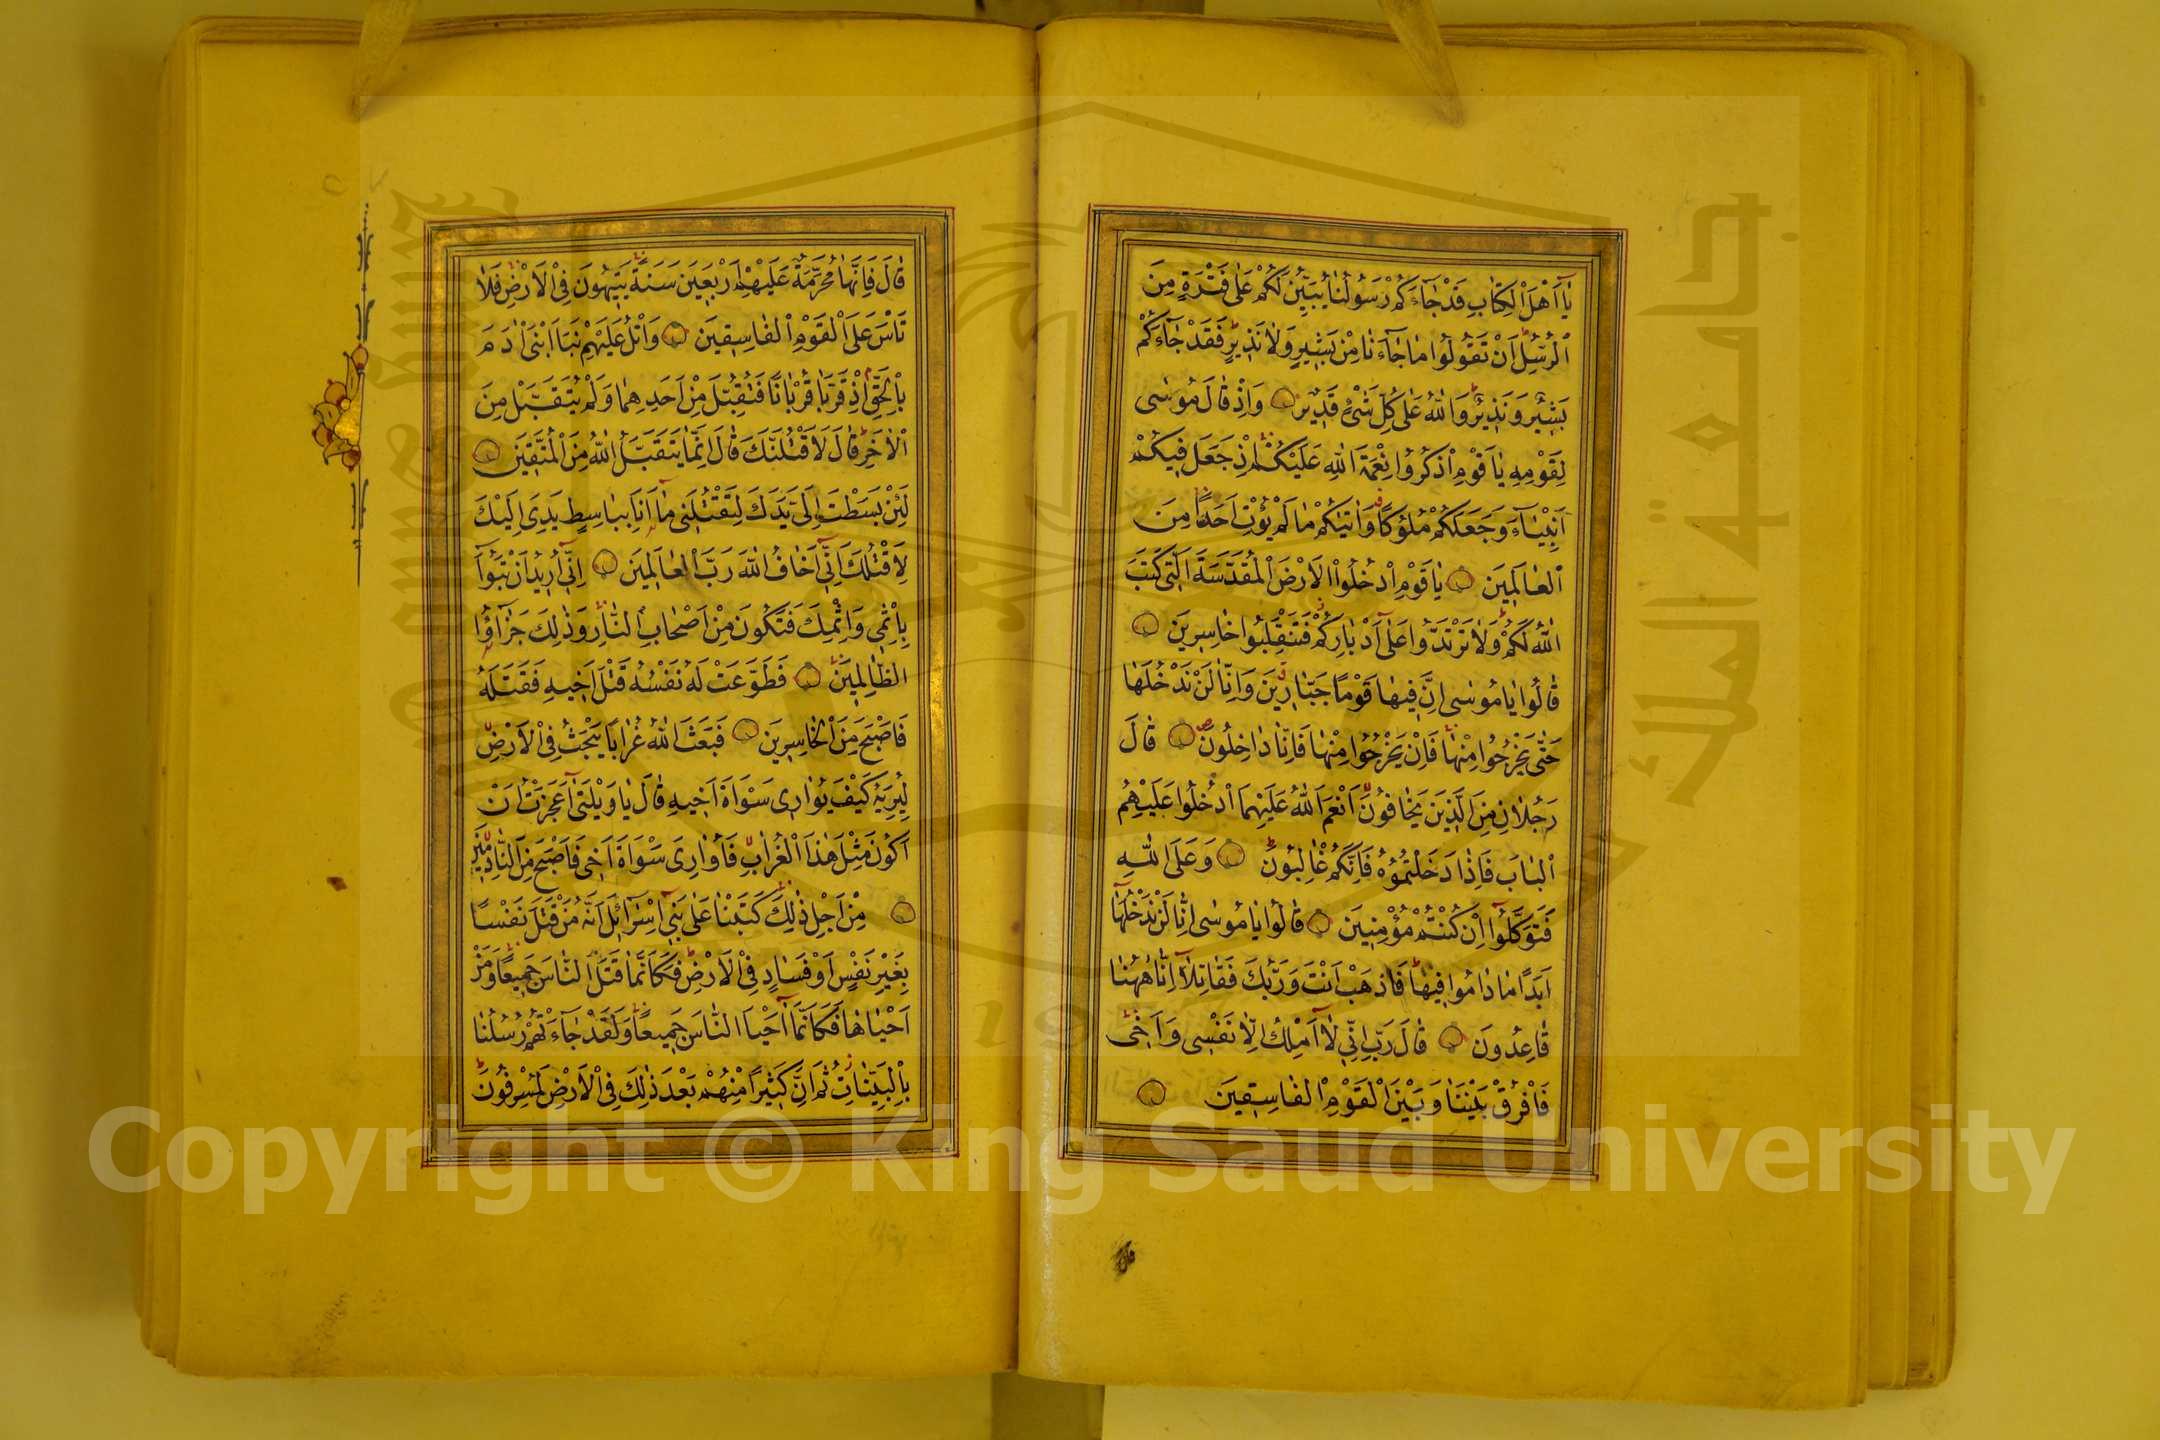 يَا أَهْلَ الْكِتَابِ قَدْ جَاءَكُمْ رَسُولُنَا يُبَيِّنُ لَكُمْ عَلَى فَتْرَةٍ مِنَ
الرُّسُلِ أَنْ تَقُولُوا مَا جَاءَنَا مِنْ بَشِيرٍ وَلَا نَذِيرٍ فَقَدْ جَاءَكُمْ
بَشِيرٌ وَنَذِيرٌ وَاللهُ عَلَى كُلِّ شَيْءٍ قَدِيرٌ وَإِذْ قَالَ مُوسَى
لِقَوْمِهِ يَا قَوْمِ اذْكُرُوا نِعْمَةَ اللهِ عَلَيْكُمْ إِذْ جَعَلَ فِيكُمْ
أَنْبِيَاءَ وَجَعَلَكُمْ مُلُوكًا وَآتَيكُمْ مَا لَمْ يُؤْتِ أَحَدًا مِنَ
الْعَالَمِينَ يَا قَوْمِ ادْخُلُوا الْأَرْضَ الْمُقَدَّسَةَ الَّتِي كَتَبَ
اللهُ لَكُمْ وَلَا تَرْتَدُّوا عَلَى أَدْبَارِكُمْ فَتَنْقَلِبُوا خَاسِرِينَ
قَالُوا يَا مُوسَى إِنَّ فِيهَا قَوْمًا جَبَّارِينَ وَإِنَّا لَنْ نَدْخُلَهَا
حَتَّى يَخْرُجُوا مِنْهَا فَإِنْ يَخْرُجُوا مِنْهَا فَإِنَّا دَاخِلُونَ قَالَ
رَجُلَانِ مِنَ الَّذِينَ يَخَافُونَ أَنْعَمَ اللهُ عَلَيْهِمَا ادْخُلُوا عَلَيْهِمُ
الْبَابَ فَإِذَا دَخَلْتُمُوهُ فَإِنَّكُمْ غَالِبُونَ وَعَلَى اللهِ
فَتَوَكَّلُوا إِنْ كُنْتُمْ مُؤْمِنِينَ قَالُوا يَا مُوسَى إِنَّا لَنْ نَدْخُلَهَا
أَبَدًا مَا دَامُوا فِيهَا فَاذْهَبْ أَنْتَ وَرَبُّكَ فَقَاتِلَا إِنَّا هٰهُنَا
قَاعِدُونَ قَالَ رَبِّ إِنِّي لَا أَمْلِكُ إِلَّا نَفْسِي وَأَخِي
فَافْرُقْ بَيْنَنَا وَبَيْنَ الْقَوْمِ الْفَاسِقِينَ
قال
قَالَ فَإِنَّهَا مُحَرَّمَةٌ عَلَيْهِمْ أَرْبَعِينَ سَنَةً يَتِيهُونَ فِي الْأَرْضِ فَلَا
تَأْسَ عَلَى الْقَوْمِ الْفَاسِقِينَ وَاتْلُ عَلَيْهِمْ نَبَأَ ابْنَيْ آدَمَ
بِالْحَقِّ إِذْ قَرَّبَا قُرْبَانًا فَتُقُبِّلَ مِنْ أَحَدِهِمَا وَلَمْ يُتَقَبَّلْ مِنَ
الْآخَرِ قَالَ لَأَقْتُلَنَّكَ قَالَ إِنَّمَا يَتَقَبَّلُ اللهُ مِنَ الْمُتَّقِينَ
لَئِنْ بَسَطْتَ إِلَيَّ يَدَكَ لِتَقْتُلَنِي مَا أَنَا بِبَاسِطٍ يَدِيَ إِلَيْكَ
لِأَقْتُلَكَ إِنِّي أَخَافُ اللهَ رَبَّ الْعَالَمِينَ إِنِّي أُرِيدُ أَنْ تَبُوأَ
بِإِثْمِي وَإِثْمِكَ فَتَكُونَ مِنْ أَصْحَابِ النَّارِ وَذٰلِكَ جَزَاؤُا
الظَّالِمِينَ فَطَوَّعَتْ لَهُ نَفْسُهُ قَتْلَ أَخِيهِ فَقَتَلَهُ
فَأَصْبَحَ مِنَ الْخَاسِرِينَ فَبَعَثَ اللهُ غُرَابًا يَبْحَثُ فِي الْأَرْضِ
لِيُرِيَهُ كَيْفَ يُوَارِي سَوْأَةَ أَخِيهِ قَالَ يَا وَيْلَتَى أَعَجَزْتُ أَنْ
أَكُونَ مِثْلَ هٰذَا الْغُرَابِ فَأُوَارِيَ سَوْأَةَ أَخِي فَأَصْبَحَ مِنَ النَّادِمِينَ
مِنْ أَجْلِ ذٰلِكَ كَتَبْنَا عَلَى بَنِي إِسْرَائِلَ أَنَّهُ مَنْ قَتَلَ نَفْسًا
بِغَيْرِ نَفْسٍ أَوْ فَسَادٍ فِي الْأَرْضِ فَكَأَنَّمَا قَتَلَ النَّاسَ جَمِيعًا وَمَنْ
أَحْيَاهَا فَكَأَنَّمَا أَحْيَا النَّاسَ جَمِيعًا وَلَقَدْ جَاءَتْهُمْ رُسُلُنَا
بِالْبَيِّنَاتِ ثُمَّ إِنَّ كَثِيرًا مِنْهُمْ بَعْدَ ذٰلِكَ فِي الْأَرْضِ لَمُسْرِفُونَ
جامعة الملك
King Saud
Copyright © King Saud University